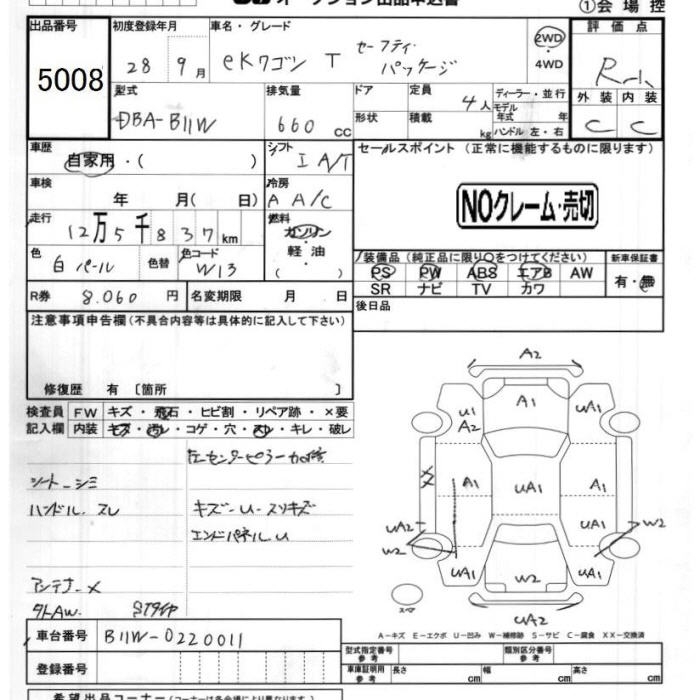 オークション出品申込書
①会場控
出品番号 初度登録年月 車名・グレード 評価点
5008 28 9月 eKワゴン T セーフティ パッケージ 2WD・4WD R-1
外装 内装
C C
型式 排気量 ドア 定員 4人 ディーラー・並行
モデル年式 年
DBA-B11W 660 cc 形状 積載 kg ハンドル 左・右
車歴 シフト セールスポイント (正常に機能するものに限ります)
自家用・( ) I A/T
車検 年 月( 日) 冷房 A A/C
NOクレーム・売切
走行 12万5千837km 燃料 ガソリン・軽油・( )
色 白パール 色替 色コード W13
装備品(純正品に限り○をつけてください) 新車保証書
PS PW ABS エアB AW 有・無
SR ナビ TV カワ
R券 8.060円 名変期限 月 日
後日品
注意事項申告欄(不具合内容等は具体的に記入して下さい)
修復歴 有〔箇所 〕
検査員記入欄 FW キズ・飛石・ヒビ割・リペア跡・×要
内装 キズ・汚レ・コゲ・穴・スレ・キレ・破レ
左センターピラー
シート シミ
ハンドル スレ キズ-U-スリキズ
エンドパネルU
アンテナ-×
タトAW. Sタイヤ
A2
U1 A2 A1 UA1
XX A1 UA1 A1
UA2 W2 UA1 W2
UA1 W2 UA1
スペア UA2
A-キズ E-エクボ U-凹み W-補修跡 S-サビ C-腐食 XX-交換済
車台番号 B11W-0220011
登録番号
型式指定番号 参考 類別区分番号 参考
車庫証明用 参考 長さ cm 幅 cm 高さ cm
希望出品コーナー(コーナーは各会場により異なります)